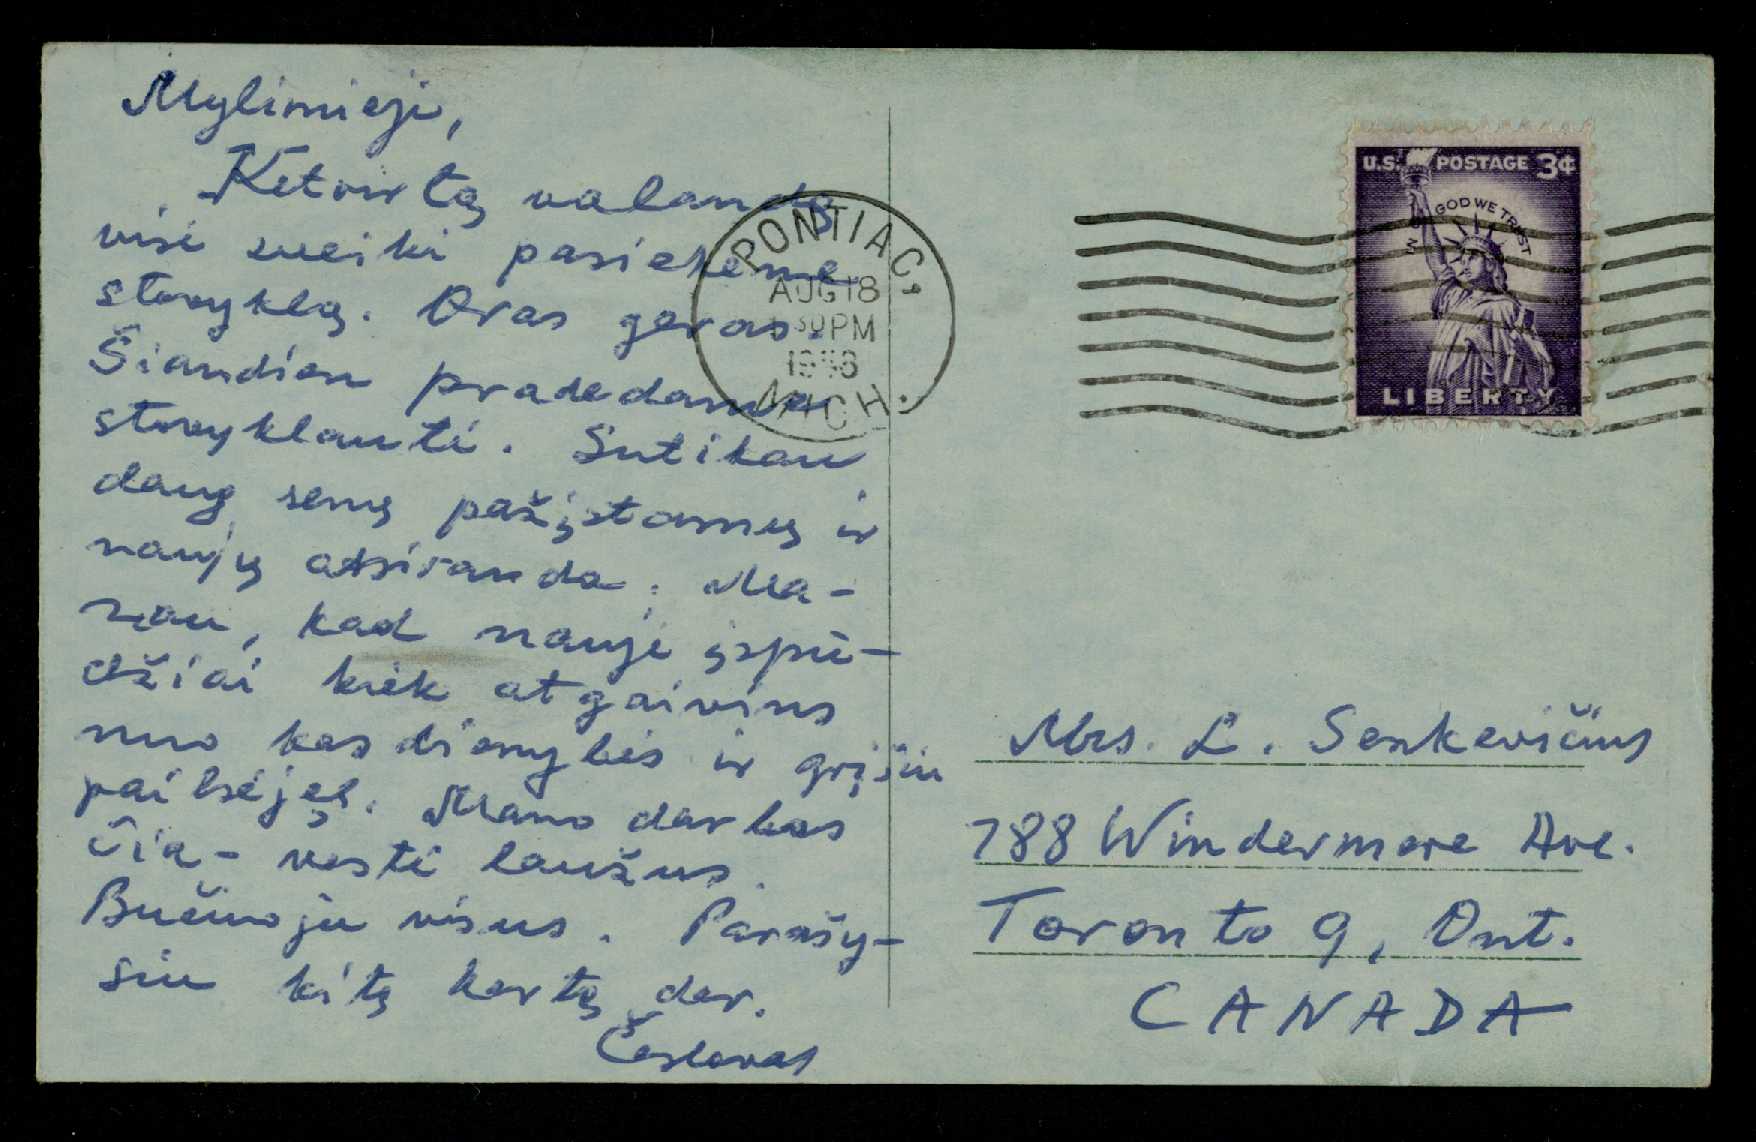 Mylimieji,
Ketvirtą valandą
visi sveiki pasiekėme
stovyklą. Oras geras.
Šiandien pradedame
stovyklauti. Sutikau
daug senų pažįstamų ir
naujų atsiranda. Ma-
nau, kad nauji įspū-
džiai kiek atgaivins
nuo kasdienybės ir grįšiu
pailsėjęs. Mano darbas
čia - vesti laužus.
Bučiuoju visus. Parašy-
siu kitą kartą dar.
Česlovas
PONTIAC,
AUG 18
30 PM
MICH.
U.S. POSTAGE 3¢
IN GOD WE TRUST
LIBERTY
Mrs. L. Senkevičius
788 Windermere Ave.
Toronto 9, Ont.
CANADA